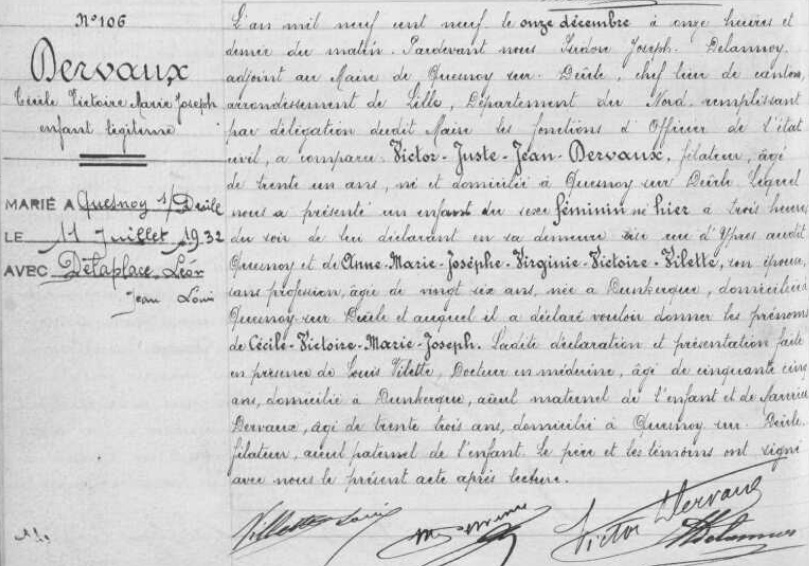 N° 106
Dervaux
Cécile Victoire Marie Joseph
enfant légitime
MARIÉ A Quesnoy s/ Deûle
LE 11 Juillet 1932
AVEC Delaplace Léon
Jean Louis
L'an mil neuf cent neuf le onze décembre à onze heures et
demie du matin. Pardevant nous Isidore Joseph Delannoy,
adjoint au Maire de Quesnoy sur Deûle, chef lieu de canton,
arrondissement de Lille, Département du Nord remplissant
par délégation dudit Maire les fonctions d'Officier de l'état
civil, a comparu Victor-Juste-Jean-Dervaux, filateur, âgé
de trente un ans, né et domicilié à Quesnoy sur Deûle. Lequel
nous a présenté un enfant du sexe féminin né hier à trois heures
du soir de lui déclarant en sa demeure sise rue d'Ypres audit
Quesnoy et de Anne-Marie-Josèphe-Virginie-Victoire-Vilette, son épouse,
sans profession, âgée de vingt six ans, née à Dunkerque, domiciliée
Quesnoy sur Deûle et auquel il a déclaré vouloir donner les prénoms
de Cécile-Victoire-Marie-Joseph. Ladite déclaration et présentation faite
en présence de Louis Vilette, Docteur en médecine, âgé de cinquante cinq
ans, domicilié à Dunkerque, aïeul maternel de l'enfant et de
Dervaux, âgé de trente trois ans, domicilié à Quesnoy sur Deûle.
filateur, aïeul paternel de l'enfant. Le père et les témoins ont signé
avec nous le présent acte après lecture.
Villette Louis
Victor Dervaux
Delannoy